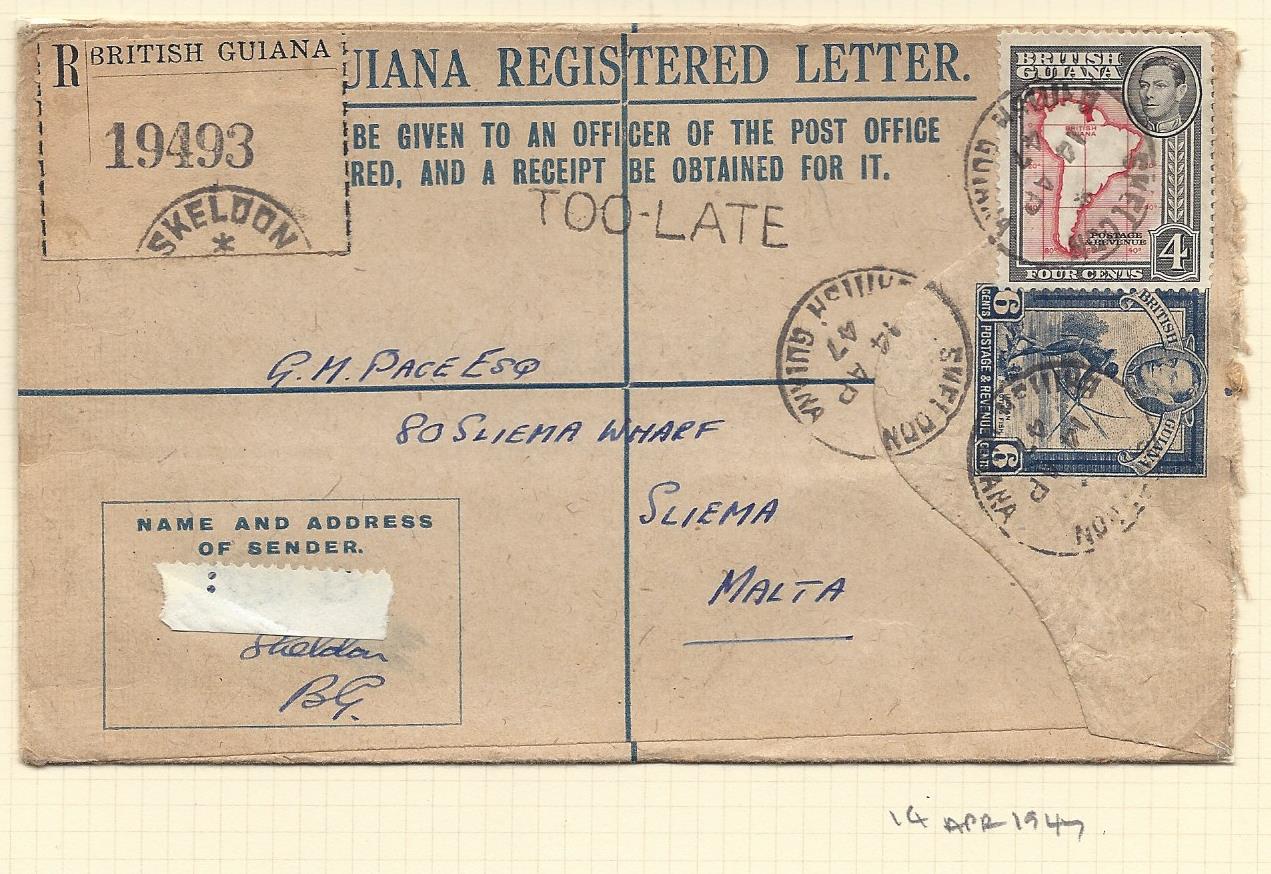 R BRITISH GUIANA
19493
SKELDON
*
UIANA REGISTERED LETTER.
BE GIVEN TO AN OFFICER OF THE POST OFFICE
RED, AND A RECEIPT BE OBTAINED FOR IT.
TOO-LATE
BRITISH
GUIANA
BRITISH
GUIANA
POSTAGE
& REVENUE
4
FOUR CENTS
SKELDON
14 AP
47
BRITISH GUIANA
6
CENTS
POSTAGE & REVENUE
CENTS
6
BRITISH
GUIANA
SKELDON
14 AP
47
BRITISH GUIANA
G.M. PACE ESQ
80 SLIEMA WHARF
SLIEMA
MALTA
NAME AND ADDRESS
OF SENDER.
Skeldon
BG.
14 APR 1947